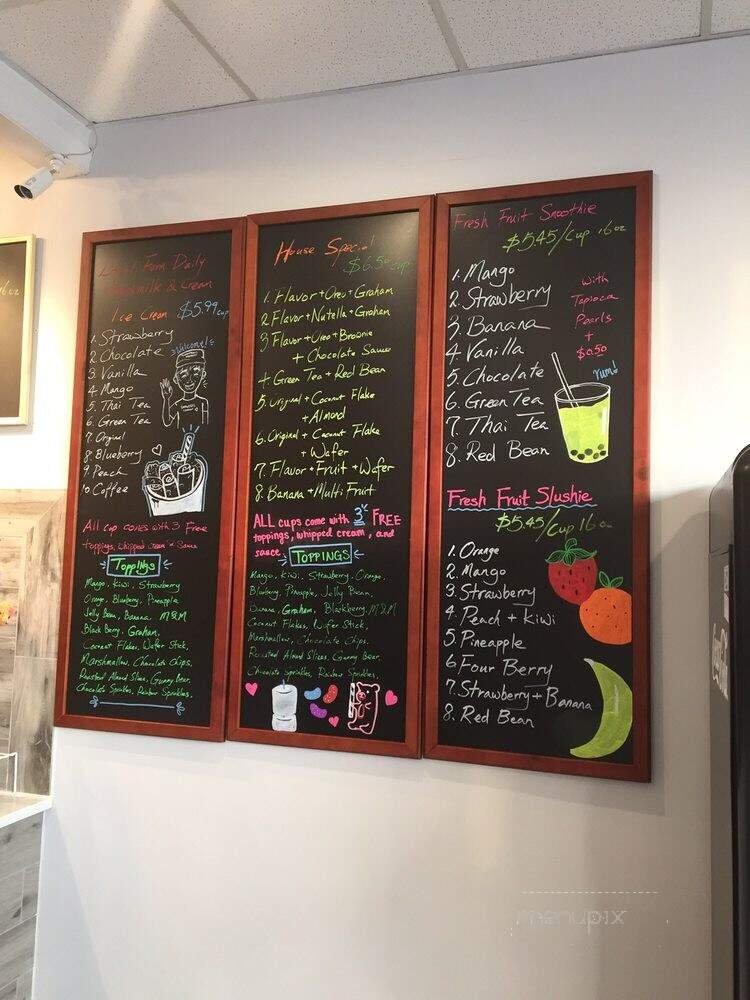 16oz
Fresh Farm Daily
milk & Cream
Ice Cream $5.99 cup
1. Strawberry
2. Chocolate
3. Vanilla
4. Mango
5. Thai Tea
6. Green Tea
7. Original
8. Blueberry
9. Peach
10. Coffee
Welcome!
All cup comes with 3 Free
toppings, whipped cream & sauce
Toppings
Mango, Kiwi, Strawberry
Orange, Blueberry, Pineapple
Jelly Bean, Banana, M&M
Black Berry, Graham,
Coconut Flakes, Wafer Stick,
Marshmallow, Chocolate Chips,
Roasted Almond Slices, Gummy Bear,
Chocolate Sprinkles, Rainbow Sprinkles.
House Special
$6.50 cup
1. Flavor + Oreo + Graham
2. Flavor + Nutella + Graham
3. Flavor + Oreo + Brownie
+ Chocolate Sauce
4. Green Tea + Red Bean
5. Original + Coconut Flake
+ Almond
6. Original + Coconut Flake
+ Wafer
7. Flavor + Fruit + Wafer
8. Banana + Multi Fruit
ALL cups come with 3 FREE
toppings, whipped cream, and
sauce.
TOPPINGS
Mango, Kiwi, Strawberry, Orange,
Blueberry, Pineapple, Jelly Bean,
Banana, Graham, Blackberry, M&M
Coconut Flakes, Wafer Stick,
Marshmallow, Chocolate Chips,
Roasted Almond Slices, Gummy Bear,
Chocolate Sprinkles, Rainbow Sprinkles.
Fresh Fruit Smoothie
$5.45/Cup 16oz
1. Mango
2. Strawberry
3. Banana
4. Vanilla
5. Chocolate
6. Green Tea
7. Thai Tea
8. Red Bean
with
Tapioca
Pearls
+
$0.50
yum!
Fresh Fruit Slushie
$5.45/Cup 16oz
1. Orange
2. Mango
3. Strawberry
4. Peach + Kiwi
5. Pineapple
6. Four Berry
7. Strawberry + Banana
8. Red Bean
menupix